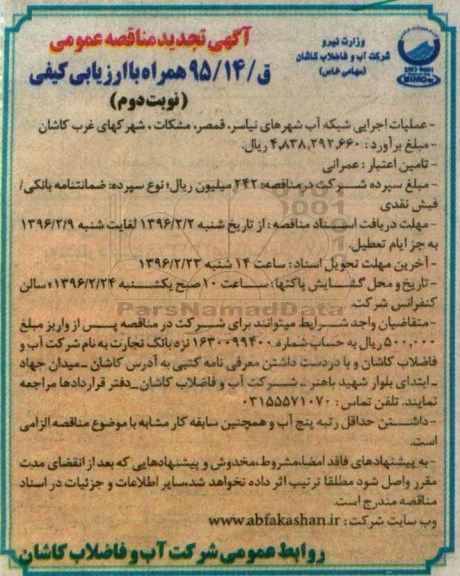 آگهی تجدید مناقصه عمومی
ق/۹۵/۱۴ همراه با ارزیابی کیفی
(نوبت دوم)
وزارت نیرو
شرکت آب و فاضلاب کاشان
(سهامی خاص)
- عملیات اجرایی شبکه آب شهرهای نیاسر، قمصر، مشکات ، شهرکهای غرب کاشان
- مبلغ برآورد : ۴,۸۳۸,۲۹۲,۶۶۰ ریال.
- تامین اعتبار : عمرانی
- مبلغ سپرده شرکت در مناقصه: ۲۴۲ میلیون ریال؛ نوع سپرده: ضمانتنامه بانکی/
فیش نقدی
- مهلت دریافت اسناد مناقصه : از تاریخ شنبه ۱۳۹۶/۲/۲ لغایت شنبه ۱۳۹۶/۲/۹
به جز ایام تعطیل.
- آخرین مهلت تحویل اسناد : ساعت ۱۴ شنبه ۱۳۹۶/۲/۲۳
- تاریخ و محل گشایش پاکتها : ساعت ۱۰ صبح یکشنبه ۱۳۹۶/۲/۲۴؛ سالن
کنفرانس شرکت.
- متقاضیان واجد شرایط میتوانند برای شرکت در مناقصه پس از واریز مبلغ
۵۰۰,۰۰۰ ریال به حساب شماره ۱۶۳۰۰۹۹۴۰۰ نزد بانک تجارت به نام شرکت آب و
فاضلاب کاشان و با در دست داشتن معرفی نامه کتبی به آدرس کاشان - میدان جهاد
- ابتدای بلوار شهید باهنر - شرکت آب و فاضلاب کاشان - دفتر قراردادها مراجعه
نمایند. تلفن تماس : ۰۳۱۵۵۵۷۱۰۷۰
- داشتن حداقل رتبه پنج آب و همچنین سابقه کار مشابه با موضوع مناقصه الزامی
است.
- به پیشنهادهای فاقد امضا، مشروط، مخدوش و پیشنهادهایی که بعد از انقضای مدت
مقرر واصل شود مطلقا ترتیب اثر داده نخواهد شد، سایر اطلاعات و جزئیات در اسناد
مناقصه مندرج است.
وب سایت شرکت : www.abfakashan.ir
روابط عمومی شرکت آب و فاضلاب کاشان
ParsNamadData